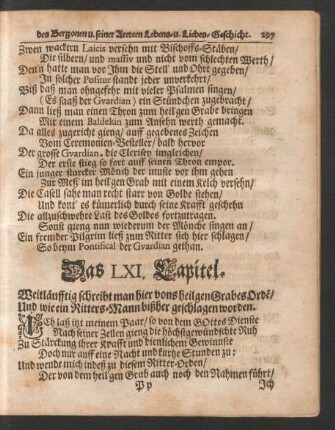 des Bergonen u. seiner Areteen Lebens- u. Lieben-Geschicht. 297
Zween wackern Laicis versehn mit Bischoffs-Stäben/
Die silbern/ und massiv und nicht vom schlechten Werth/
Denn hatte man vor Ihm die Stell' und Ohrt gegeben/
In solcher Positur standt jeder unverkehrt/
Biß daß man ohngefehr mit vieler Psalmen singen/
(Es saaß der Gvardian) ein Stündchen zugebracht/
Dann ließ man einen Thron zum heilgen Grabe bringen
Mit einem Baldekin zum Ansehn werth gemacht.
Da alles zugericht gieng/ auff gegebenes Zeichen
Vom Ceremonien-Vesteller/ bald hervor
Der grosse Gvardian, die Clerisey imgleichen/
Der erste stieg so fort auff seinen Thron empor.
Ein junger starcker Mönch der muste vor ihm gehen
Zur Meß im heilgen Grab mit einem Kelch versehn/
Die Casell sahe man recht starr von Golde stehen/
Und kont' es kümerlich durch seine Krafft geschehn
Die allzuschwehre Last des Goldes fortzutragen.
Sonst gieng nun wiederum der Mönche singen an/
Ein fremder Pilgrim ließ zum Ritter sich hier schlagen/
So beym Pontifical der Gvardian gethan.
Das LXI. Capitel.
Weitläufftig schreibt man hier vons heilgen Grabes Ordē/
Und wie ein Ritters-Mann bißher geschlagen worden.
Ich laß itzt meinem Paar/ so von dem GOttes Dienste
Nach seiner Zellen gieng die höchstgewündschte Ruh
Zu Stärckung ihrer Krafft und dienlichem Gewinnste
Doch nur auff eine Nacht und kurtze Stunden zu:
Und wende mich indeß zu diesem Ritter-Orden/
Der von dem heilgen Grab auch noch den Nahmen führt/
P p Ich